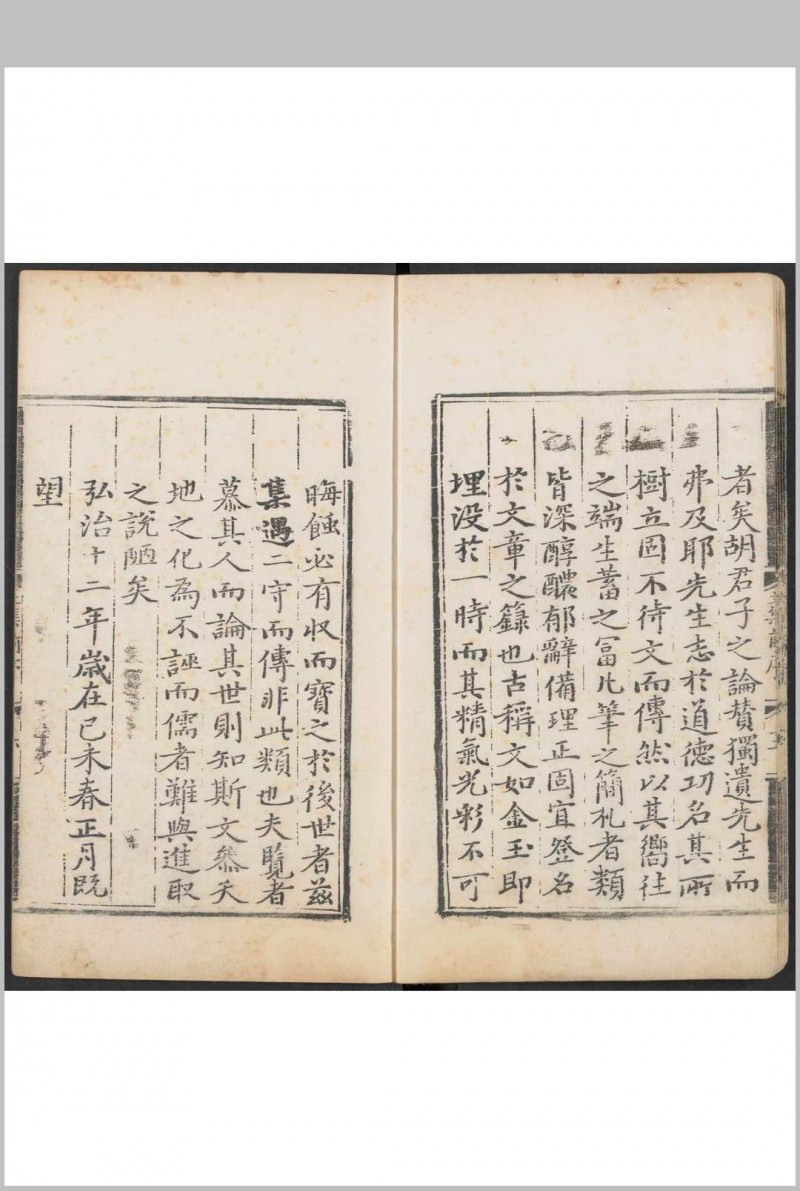 者矣胡君子之論贊獨遺先生而
弗及耶先生志於道德功名其所
樹立固不待文而傳然以其嚮往
之端生蓄之富凡筆之簡札者類
皆深醇醲郁辭備理正固宜登名
於文章之籙也古稱文如金玉即
埋没於一時而其精氣光彩不可
晦蝕必有収而寶之於後世者兹
集遇二守而傳非此類也夫覽者
慕其人而論其世則知斯文叅天
地之化為不誣而儒者難與進取
之說陋矣
弘治十二年歲在己未春正月既
望